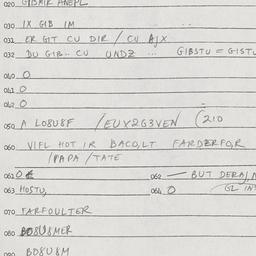 020 GIBMIR ANEPL
030 IX GIB IM
031 ER GIT CU DIR / CU AJX
032 DU GIB.. CU UNDZ ... GIBSTU = GISTU
040 O
041 O
042 O
050 A LO8U8F /EUX2G3VEN (210
060 VIFL HOT IR BACO,LT FARDERFO,R
/PAPA /TATE
061 O 062 — BUT DERAJ,N
063 HOSTU, 064 O GL INS
070 FARFOULTER
080 BO8U8MER
090 BO8U8M